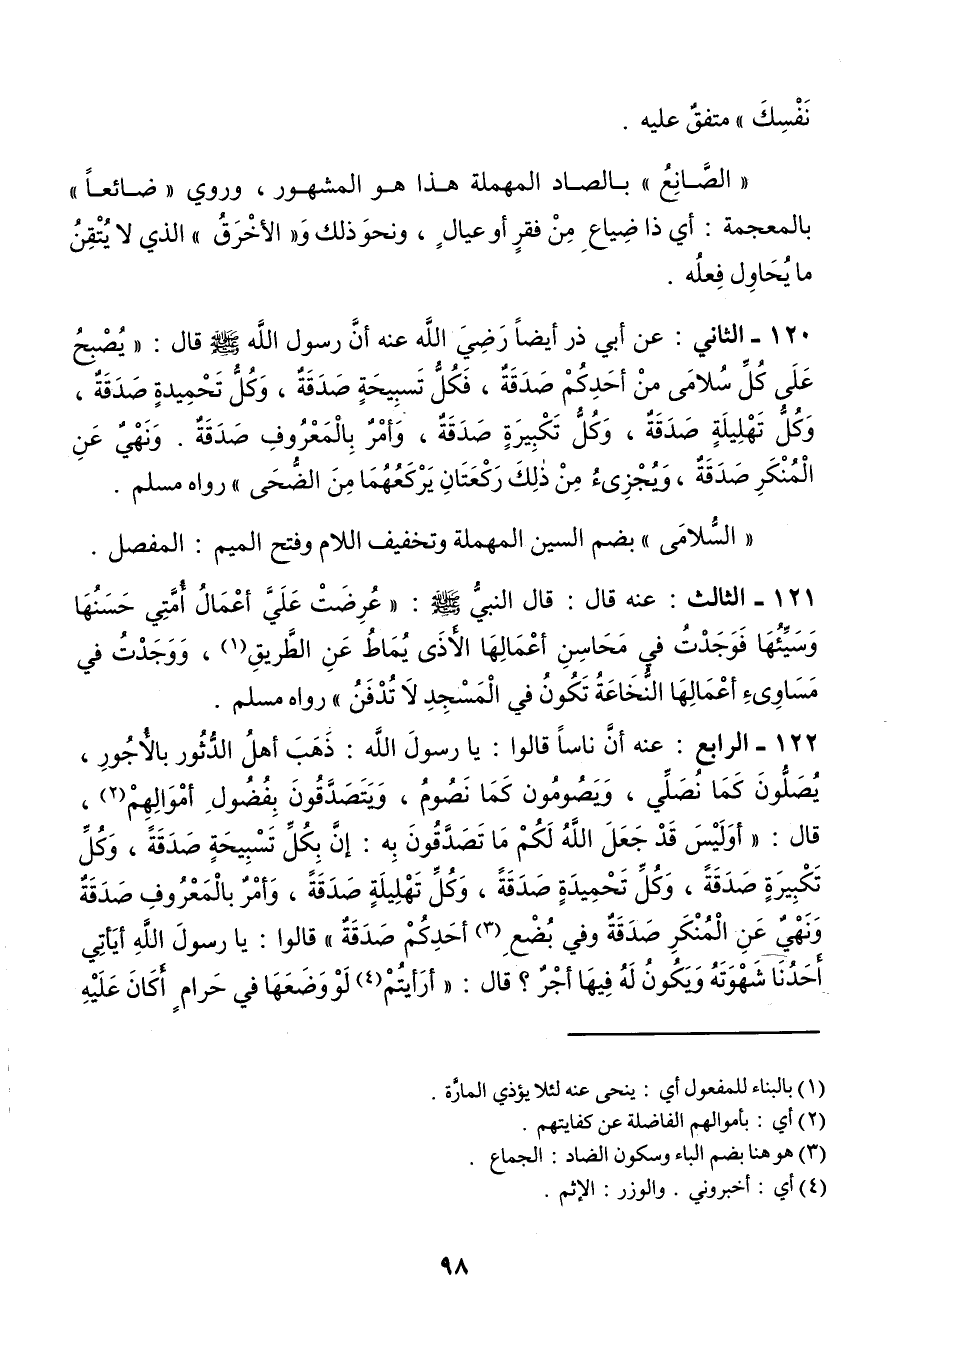 نَفْسِكَ » متفقٌ عليه .
« الصَّانِعُ » بالصاد المهملة هذا هو المشهور ، وروي « ضائعاً »
بالمعجمة : أي ذا ضِياعٍ مِنْ فقرٍ أو عيالٍ ، ونحوَ ذلك وَ« الأخْرَقُ » الذي لا يُتْقِنُ
ما يُحَاوِل فِعلُه .
١٢٠ ـ الثاني : عن أبي ذر أيضاً رَضِيَ اللَّه عنه أنَّ رسول اللَّه ﷺ قال : « يُصْبِحُ
عَلَى كُلِّ سُلامَى مِنْ أحَدِكُمْ صَدَقَةٌ ، فَكُلُّ تَسبِيحَةٍ صَدَقَةٌ ، وَكُلُّ تَحْمِيدةٍ صَدَقَةٌ ،
وَكُلُّ تَهْلِيلَةٍ صَدَقَةٌ ، وَكُلُّ تَكْبِيرَةٍ صَدَقَةٌ ، وَأمْرٌ بِالْمَعْرُوفِ صَدَقَةٌ . وَنَهْيٌ عَنِ
الْمُنْكَرِ صَدَقَةٌ ، وَيُجْزِىءُ مِنْ ذٰلِكَ رَكْعَتَانِ يَرْكَعُهُمَا مِنَ الضُّحَى » رواه مسلم .
« السُّلامَى » بضم السين المهملة وتخفيف اللام وفتح الميم : المفصل .
١٢١ ـ الثالث : عنه قال : قال النبيُّ ﷺ : « عُرِضَتْ عَلَيَّ أعْمَالُ أُمَّتِي حَسَنُهَا
وَسَيِّئُهَا فَوَجَدْتُ في مَحَاسِنِ أعْمَالِهَا الأَذَى يُمَاطُ عَنِ الطَّرِيقِ(١) ، وَوَجَدْتُ في
مَسَاوِىءِ أعْمَالِهَا النُّخَاعَةُ تَكُونُ في الْمَسْجِدِ لَا تُدْفَنُ » رواه مسلم .
١٢٢ ـ الرابع : عنه أنَّ ناساً قالوا : يا رسولَ اللَّه : ذَهَبَ أهلُ الدُّثُور بالأُجُورِ ،
يُصَلُّونَ كَمَا نُصَلِّي ، وَيَصُومُون كَمَا نَصُومُ ، وَيَتَصَدَّقُونَ بِفُضُولِ أمْوَالِهِمْ(٢) ،
قال : « أوَلَيْسَ قَدْ جَعَلَ اللَّهُ لَكُمْ مَا تَصَدَّقُونَ بِه : إنَّ بِكُلِّ تَسْبِيحَةٍ صَدَقَةً ، وَكُلِّ
تَكْبِيرَةٍ صَدَقَةً ، وَكُلِّ تَحْمِيدَةٍ صَدَقَةً ، وَكُلِّ تَهْلِيلَةٍ صَدَقَةً ، وَأمْرٌ بالْمَعْرُوفِ صَدَقَةٌ
وَنَهْيٌ عَنِ الْمُنْكَرِ صَدَقَةٌ وفي بُضْعِ(٣) أحَدِكُمْ صَدَقَةٌ » قالوا : يا رسولَ اللَّهِ أيَأتِي
أَحَدُنَا شَهْوَتَهُ وَيَكُونُ لَهُ فِيهَا أجْرٌ ؟ قال : « أرَأيتُمْ(٤) لَوْ وَضَعَهَا في حَرامٍ أَكَانَ عَلَيْهِ
(١) بالبناء للمفعول أي : ينحى عنه لئلا يؤذي المارَّة .
(٢) أي : بأموالهم الفاضلة عن كفايتهم .
(٣) هو هنا بضم الباء وسكون الضاد : الجماع .
(٤) أي : أخبروني . والوزر : الإثم .
٩٨